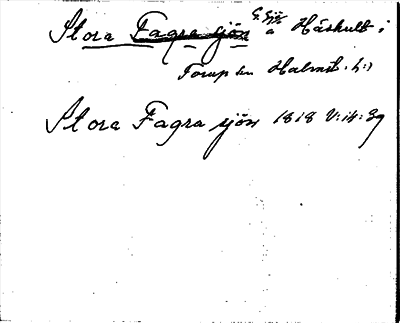 Stora Fagra sjön å Håskult i
Torup sn Halmst. h:d
Stora Fagra sjön 1818 V:14:39